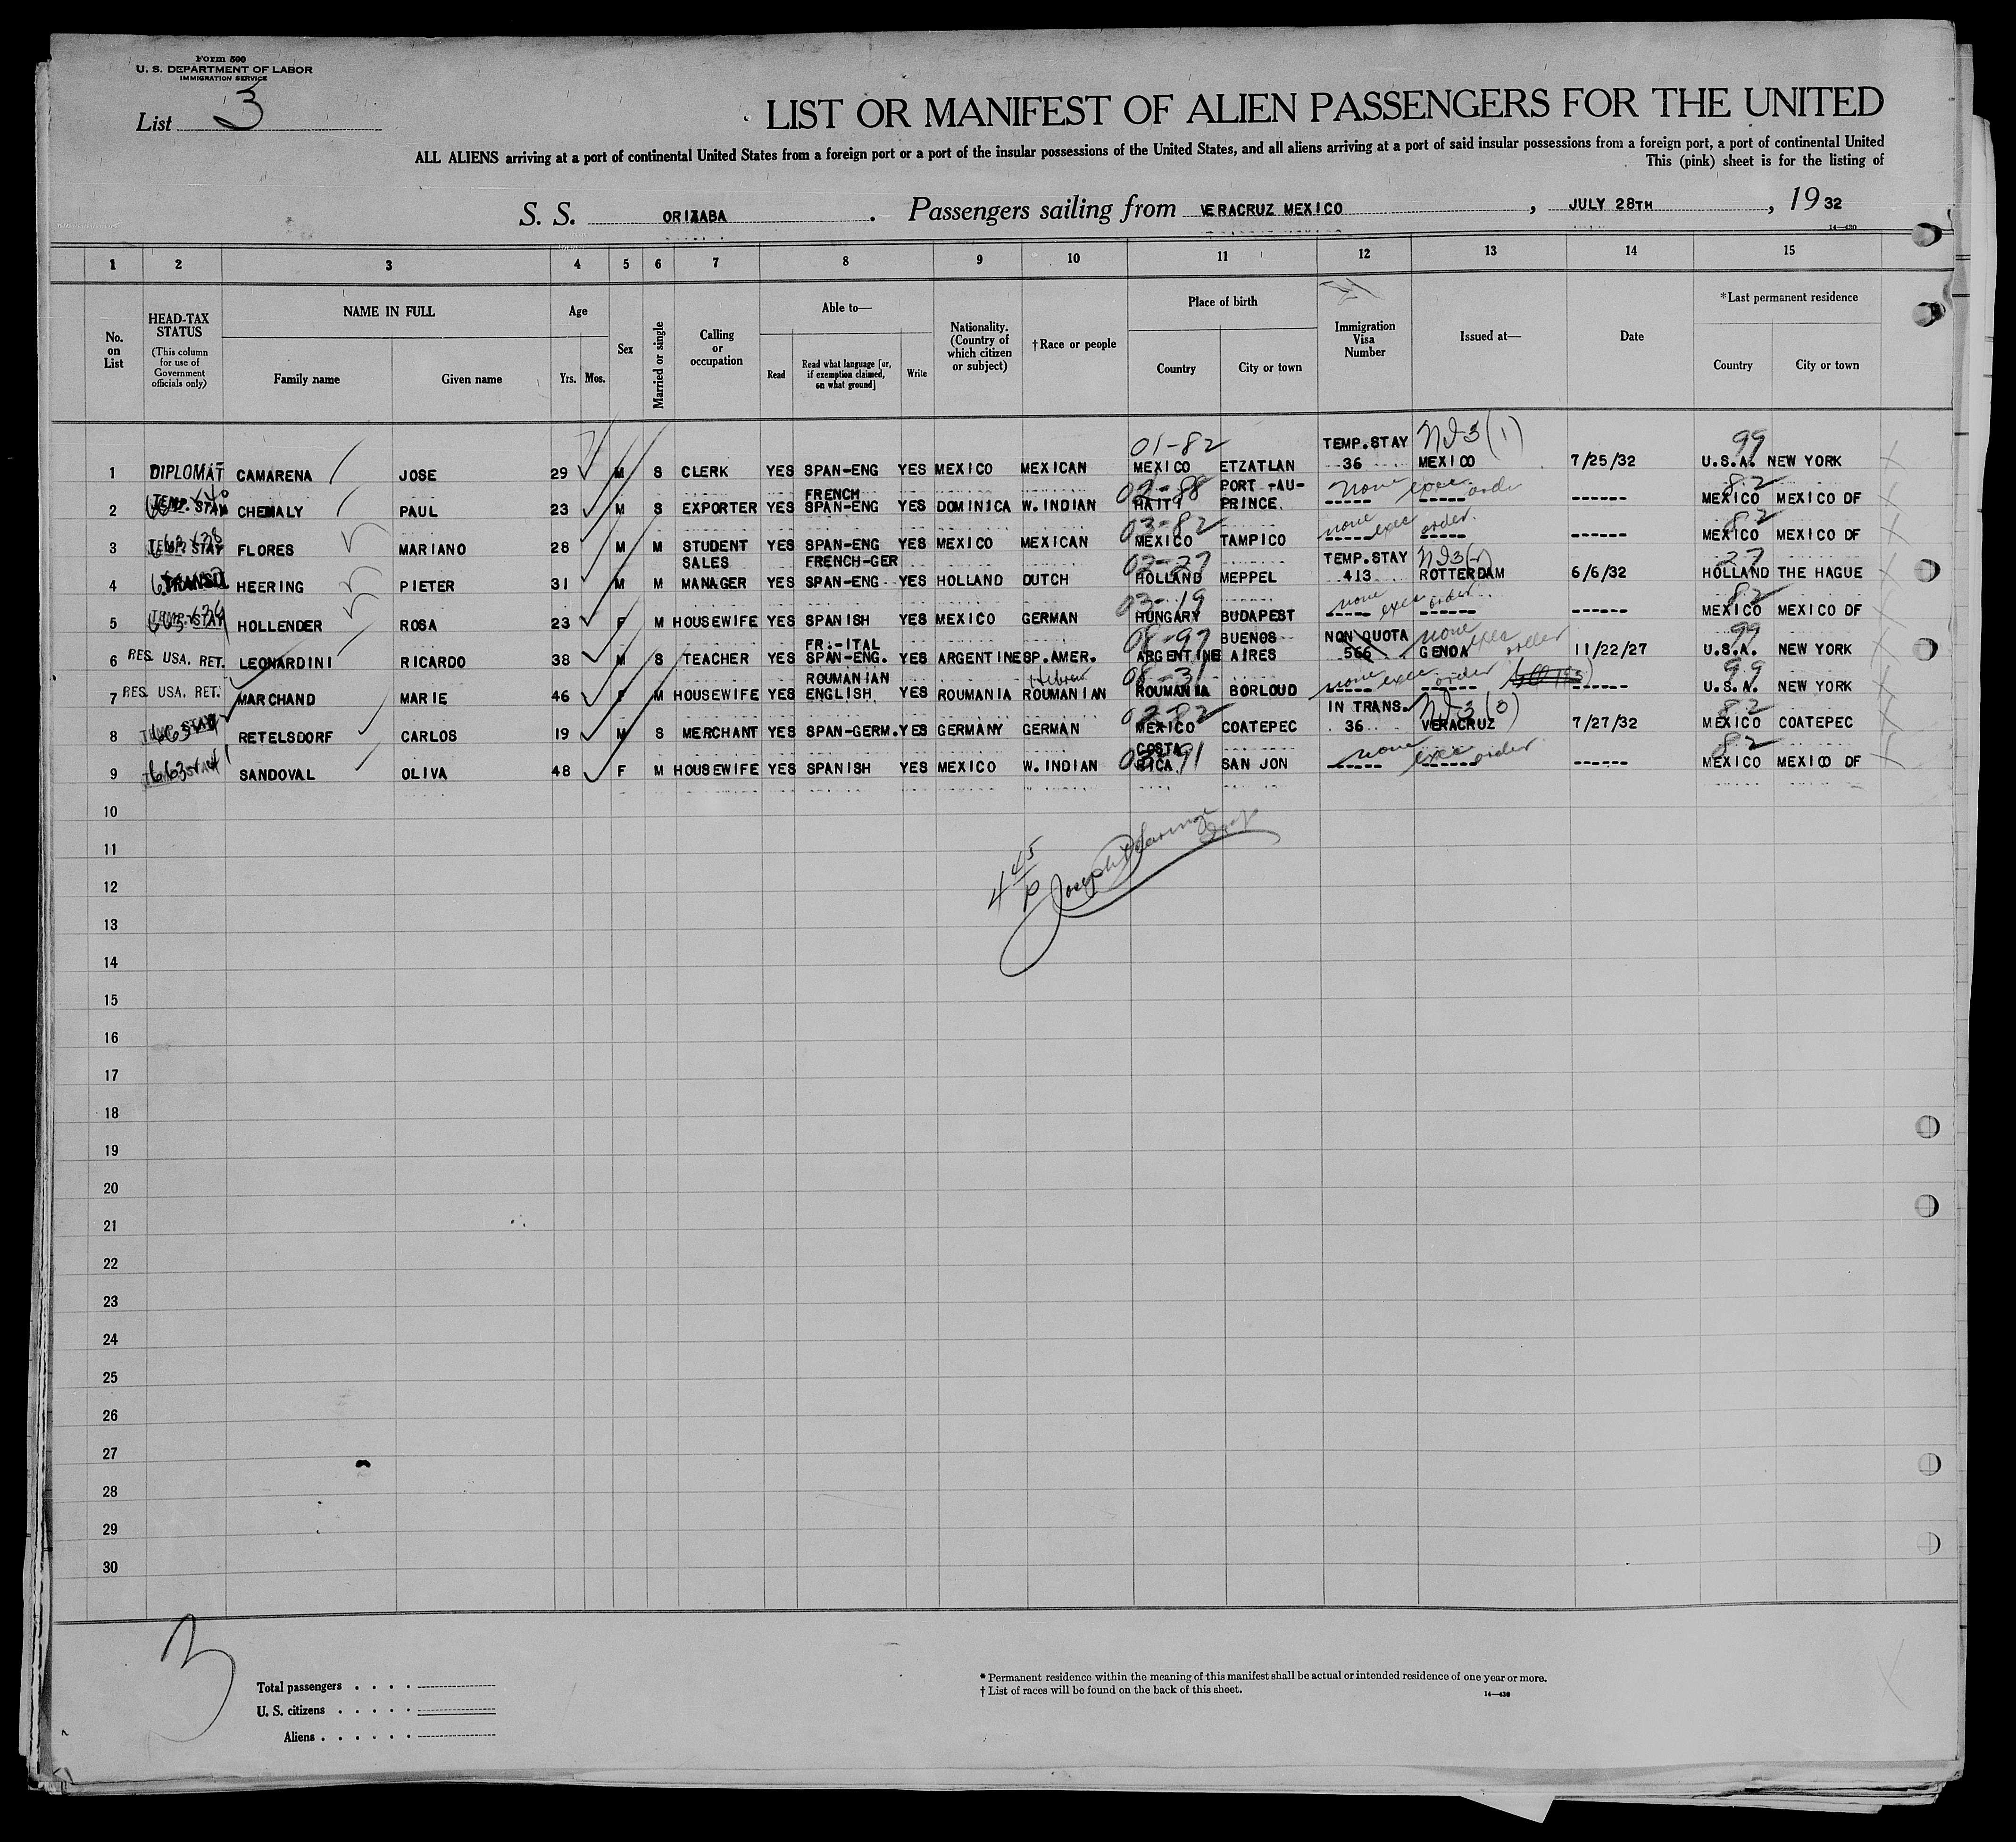 Form 500
U. S. DEPARTMENT OF LABOR
IMMIGRATION SERVICE
List 3
LIST OR MANIFEST OF ALIEN PASSENGERS FOR THE UNITED
ALL ALIENS arriving at a port of continental United States from a foreign port or a port of the insular possessions of the United States, and all aliens arriving at a port of said insular possessions from a foreign port, a port of continental United
This (pink) sheet is for the listing of
S. S. ORIZABA . Passengers sailing from VERACRUZ MEXICO , JULY 28TH , 19 32
14—430
1 2 3 4 5 6 7 8 9 10 11 12 13 14 15
No. on List HEAD-TAX STATUS (This column for use of Government officials only) NAME IN FULL Family name Given name Age Yrs. Mos. Sex Married or single Calling or occupation Able to— Read Read what language [or, if exemption claimed, on what ground] Write Nationality. (Country of which citizen or subject) †Race or people Place of birth Country City or town Immigration Visa Number Issued at— Date *Last permanent residence Country City or town
01-82 TEMP.STAY NI3(1) 99
1 DIPLOMAT CAMARENA JOSE 29 M S CLERK YES SPAN-ENG YES MEXICO MEXICAN MEXICO ETZATLAN 36 MEXICO 7/25/32 U.S.A. NEW YORK
FRENCH 02-88 PORT -AU- none exec order 82
2 TEMP. STAY CHEMALY PAUL 23 M S EXPORTER YES SPAN-ENG YES DOMINICA W. INDIAN HAITI PRINCE. ----- ----- ------ MEXICO MEXICO DF
03-82 none exec order. 82
3 TEMP. STAY FLORES MARIANO 28 M M STUDENT YES SPAN-ENG YES MEXICO MEXICAN MEXICO TAMPICO ----- ----- ------ MEXICO MEXICO DF
SALES FRENCH-GER 02-27 TEMP.STAY 27
4 TRANSIT HEERING PIETER 31 M M MANAGER YES SPAN-ENG YES HOLLAND DUTCH HOLLAND MEPPEL 413 ROTTERDAM 6/6/32 HOLLAND THE HAGUE
03-19 none exec order 82
5 TEMP. STAY HOLLENDER ROSA 23 F M HOUSEWIFE YES SPANISH YES MEXICO GERMAN HUNGARY BUDAPEST ----- ------ ------ MEXICO MEXICO DF
FR.-ITAL 08-97 BUENOS NON QUOTA none exec order 99
6 RES. USA. RET. LEONARDINI RICARDO 38 M S TEACHER YES SPAN-ENG. YES ARGENTINE SP.AMER. ARGENTINE AIRES 566 GENOA 11/22/27 U.S.A. NEW YORK
ROUMANIAN Hebrew 08-31 none exec order 99
7 RES. USA. RET. MARCHAND MARIE 46 F M HOUSEWIFE YES ENGLISH YES ROUMANIA ROUMANIAN ROUMANIA BORLOUD ----- ------ ------ U.S.A. NEW YORK
02-82 IN TRANS. NI3(3) 82
8 STAY RETELSDORF CARLOS 19 M S MERCHANT YES SPAN-GERM. YES GERMANY GERMAN MEXICO COATEPEC 36 VERACRUZ 7/27/32 MEXICO COATEPEC
COSTA none exec order 82
9 SANDOVAL OLIVA 48 F M HOUSEWIFE YES SPANISH YES MEXICO W. INDIAN RICA. SAN JON ----- ------ ------ MEXICO MEXICO DF
10
11
12
13
14
15
16
17
18
19
20
21
22
23
24
25
26
27
28
29
30
3
Total passengers . . . .
U. S. citizens . . . . .
Aliens . . . . . .
* Permanent residence within the meaning of this manifest shall be actual or intended residence of one year or more.
† List of races will be found on the back of this sheet.
14—430